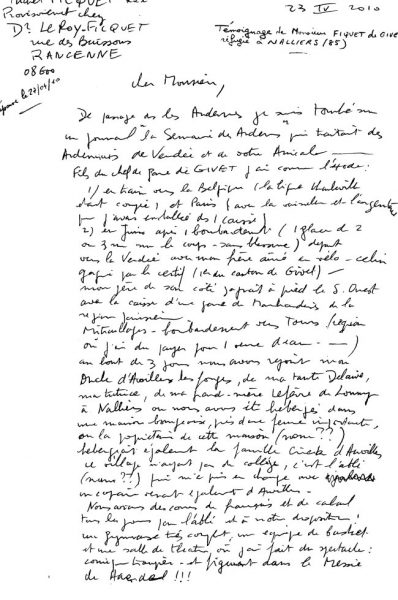 Provisoirement chez
Dr LEROY-FICQUET
rue des Buissons
RANCENNE
08600
23 IV 2010
Témoignage de Monsieur FIQUET de GIVET
réfugié à NALLIERS (85)
Cher Monsieur,
De passage ds les Ardennes je suis tombé sur
un journal la Semaine des Ardennes qui traitait des
Ardennais de Vendée et de votre Amicale
Fils du chef de gare de GIVET j'ai connu l'exode :
1) en train vers la Belgique (la ligne Charleville
était coupée) et Paris (avec la vaisselle et l'argenterie
que j'avais emballée ds 1 caisse)
2) en Juin après 1 bombardement (1 glace de 2
ou 3 m sur le corps - sans blessure) départ
vers la Vendée avec mon frère aîné en vélo - celui
gagné par le certif (1er du canton de Givet) -
mon père de son côté gagnait à pied le S. Ouest
avec la caisse d'une gare de Marchandises de la
région parisienne
Mitraillages - bombardement vers Tours (région
où j'ai du payer pour 1 verre d'eau - )
au bout de 3 jours nous avons rejoint mon
Oncle d'Auvillers les forges, de ma tante Delaire,
ma tutrice, de ma grand-mère Lefèvre de Lonny
à Nalliers où nous avons été hébergés dans
une maison bourgeoise, près d'une ferme importante,
où la propriétaire de cette maison (nom ??)
hébergeait également la famille d'Auvillers
ce village n'ayant pas de collège, c'est l'abbé
(nom ??) qui m'a pris en charge avec
un copain venant également d'Auvillers -
Nous avons des cours de français et de calcul
tous les jours par l'abbé et à notre disposition :
un gymnase très complet, un équipe de basket
et une salle de théatre où j'ai fait du spectacle :
comique troupier - et figurant dans le Messie
de Haendel !!!